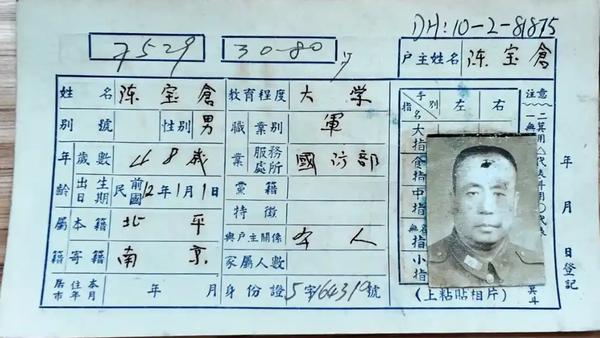 DH:10-2-81875
7529
30-80
戶主姓名 陈宝倉
姓名 陈宝倉
教育程度 大学
別號
性別 男
職業 業別 軍
年齡 歲數 48歲
服務處所 國防部
出生日期 民前國12年1月1日
黨籍
特徵
屬籍 本籍 北平
與戶主關係 本人
寄籍 南京
家屬人數
居住本市年月 年 月
身份證 5字164319號
指名 手別 左 右
大指
食指
中指
無名指
小指
(上粘貼相片)
注意
年月日登記